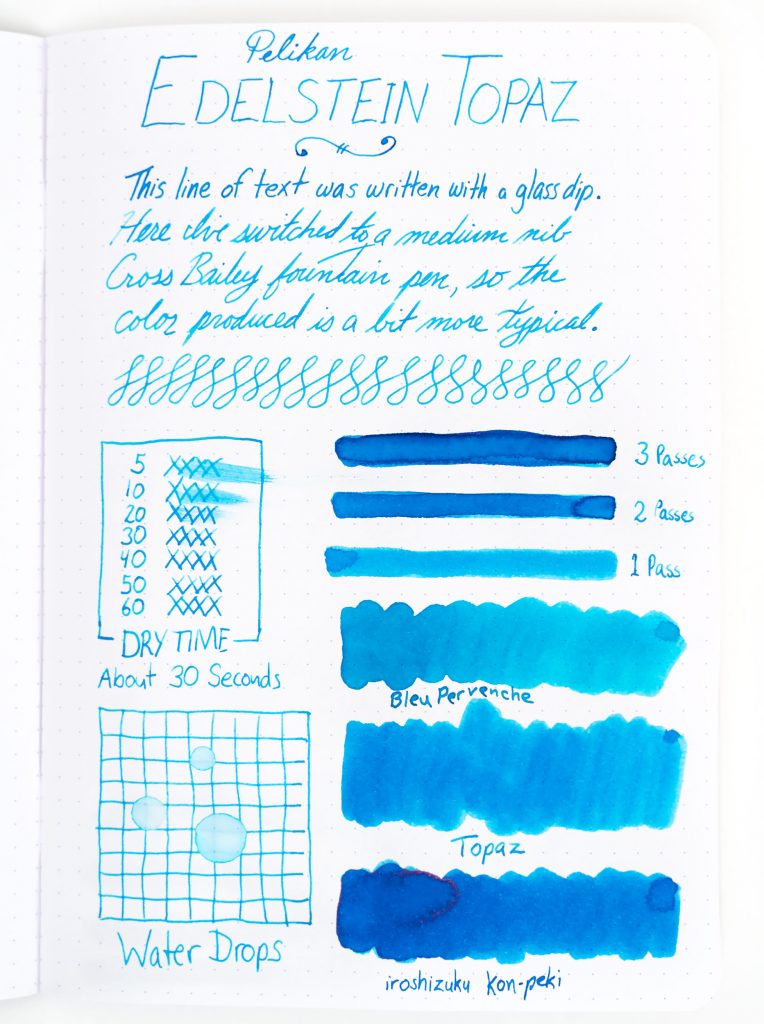 Pelikan
EDELSTEIN TOPAZ
This line of text was written with a glass dip.
Here I've switched to a medium nib
Cross Bailey fountain pen, so the
color produced is a bit more typical.
5 XXXX
10 XXXX
20 XXXX
30 XXXX
40 XXXX
50 XXXX
60 XXXX
DRY TIME
About 30 Seconds
3 Passes
2 Passes
1 Pass
Bleu Pervenche
Topaz
iroshizuku Kon-peki
Water Drops